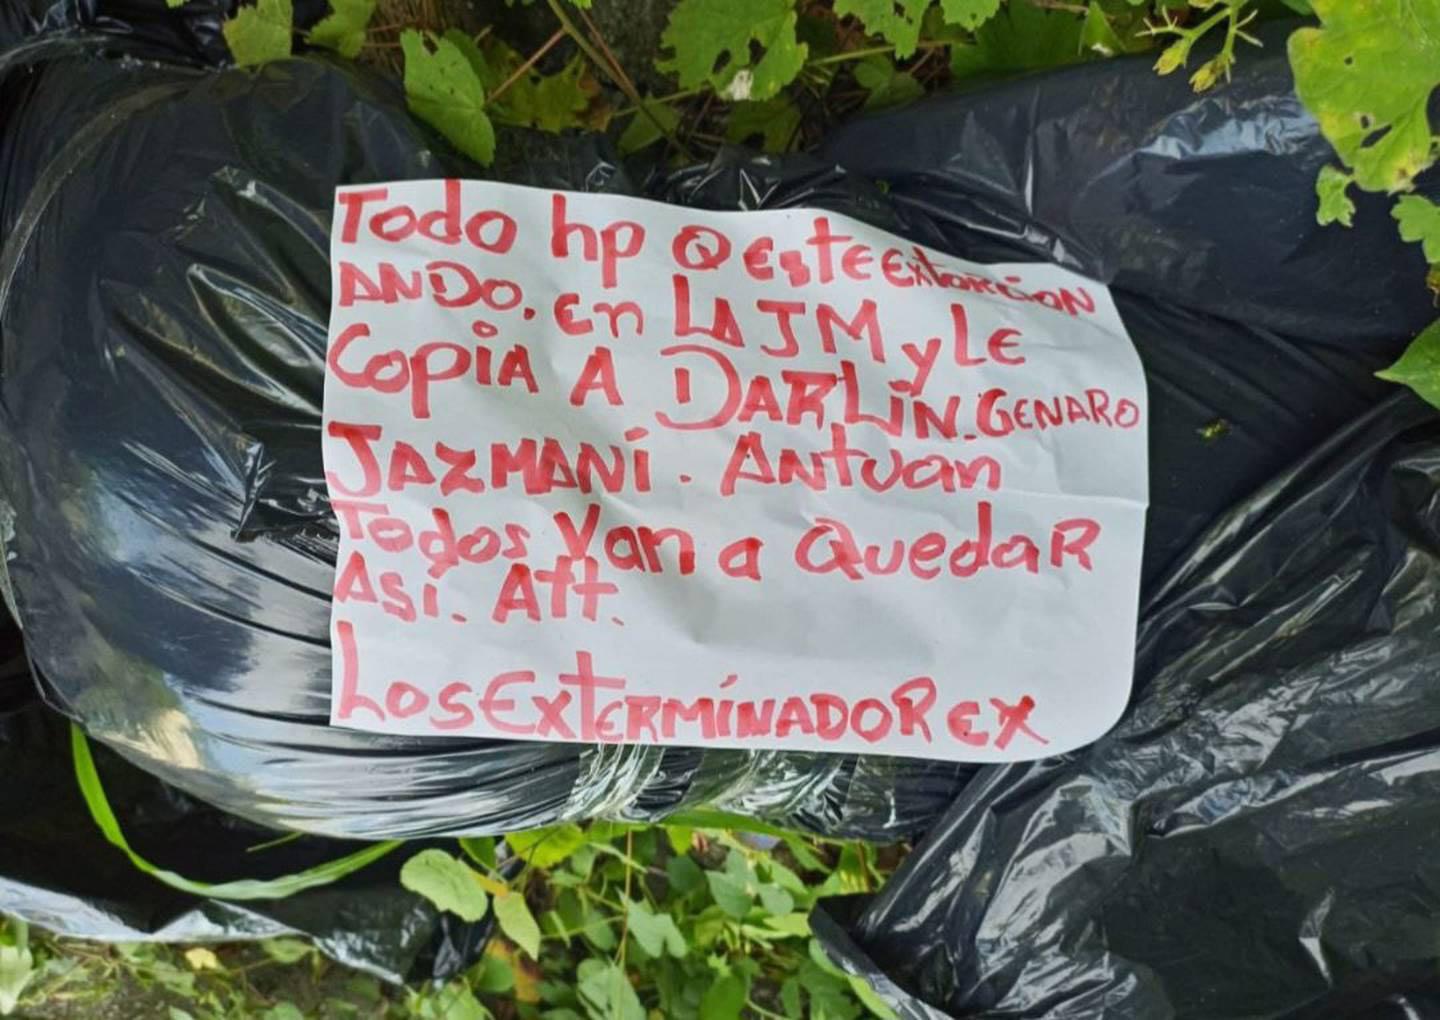 Todo hp Q este extorcion
ANDO. en LA JM y Le
Copia A DARLin. GENARO
JAZMANí. Antuan
Todos Van a QuedaR
Así. Att.
Los ExTERMíNADOR ex